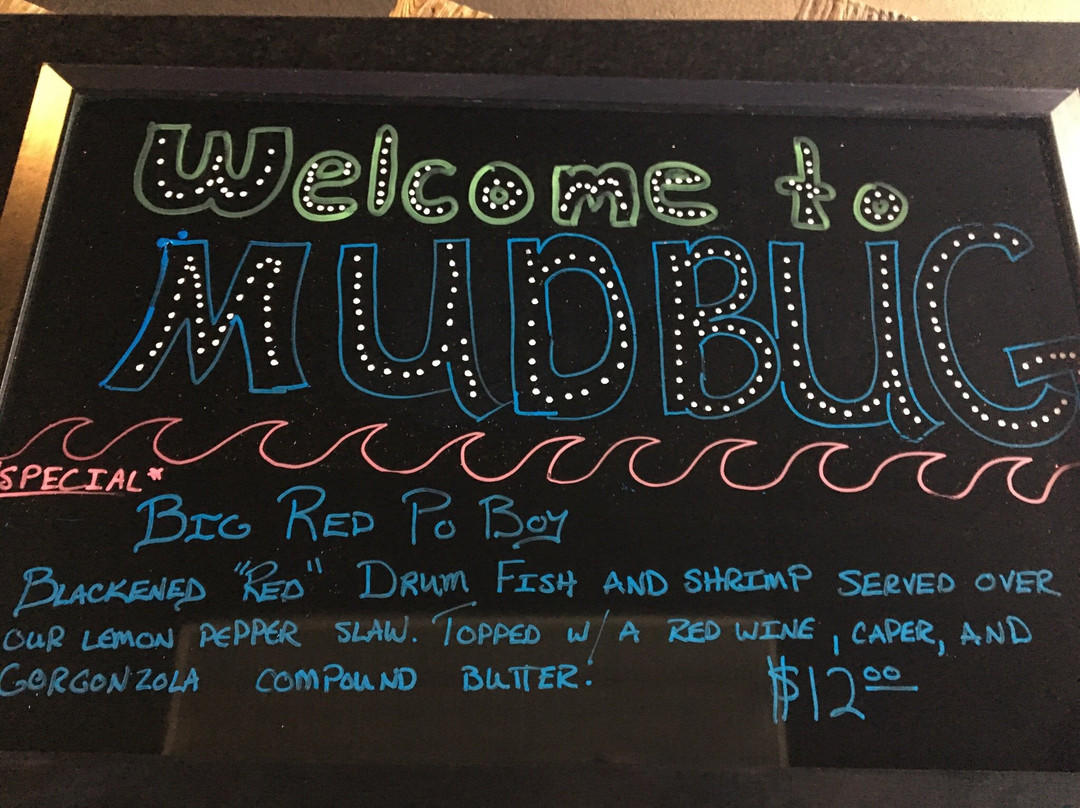 Welcome to
MUDBUG
*SPECIAL*
BIG RED PO BOY
BLACKENED "RED" DRUM FISH AND SHRIMP SERVED OVER
OUR LEMON PEPPER SLAW. TOPPED W/ A RED WINE, CAPER, AND
GORGONZOLA COMPOUND BUTTER!
$12.00